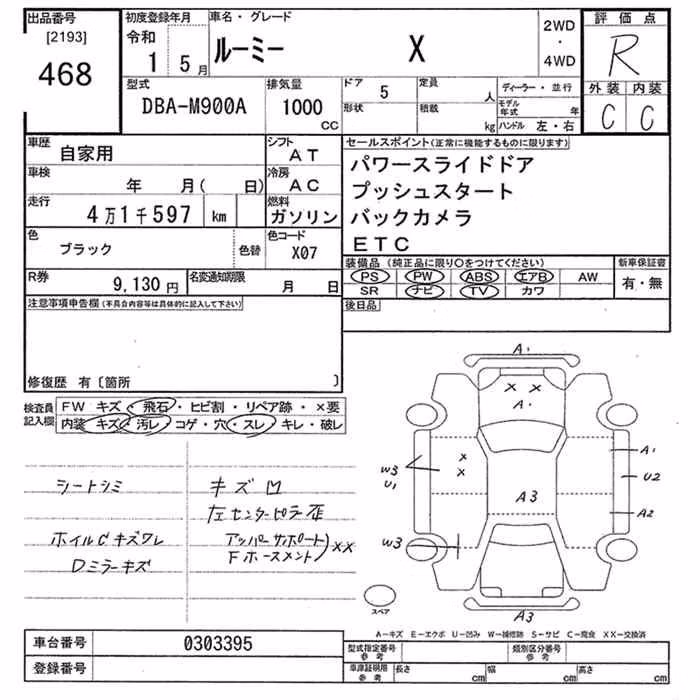 出品番号 初度登録年月 車名・グレード 2WD・4WD 評価点
[2193] 令和
468 1 5月 ルーミー X R
外装 内装
C C
型式 排気量 ドア 5 定員 人 ディーラー・並行
DBA-M900A 1000 cc 形状 積載 kg モデル年式 年
ハンドル 左・右
車歴 自家用 シフト AT
車検 年 月( 日) 冷房 AC
走行 4万1千597 km 燃料 ガソリン
色 ブラック 色替 色コード X07
R券 9,130円 名変通知期限 月 日
セールスポイント(正常に機能するものに限ります)
パワースライドドア
プッシュスタート
バックカメラ
ETC
装備品(純正品に限り○をつけてください) 新車保証書
PS PW ABS エアB AW 有・無
SR ナビ TV カワ
後日品
注意事項申告欄(不具合内容等は具体的に記入して下さい)
修復歴 有〔箇所 〕
検査員記入欄 FW キズ・飛石・ヒビ割・リペア跡・×要
内装 キズ・汚レ・コゲ・穴・スレ・キレ・破レ
シートシミ
ホイルCキズワレ
Dミラーキズ
キズ凹
左センターピラー歪
アッパーサポート
Fホースメント)××
A1
× ×
A1
W3
U1
×
×
A1
U2
A3
A2
W3
A3
スペア
A-キズ E-エクボ U-凹み W-補修跡 S-サビ C-腐食 XX-交換済
車台番号 0303395
登録番号
型式指定番号 参考 類別区分番号 参考
車庫証明用 参考 長さ cm 幅 cm 高さ cm